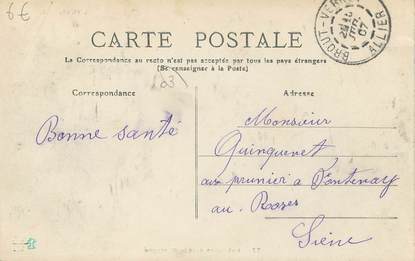 6€
CARTE POSTALE
La Correspondance au recto n'est pas acceptée par tous les pays étrangers
(Se renseigner à la Poste)
(03)
Correspondance
Adresse
BROUT-VERN
ALLIER
Bonne santé
Monsieur
Quinquenet
aux prunier à Fontenay
au. Roses
Siène